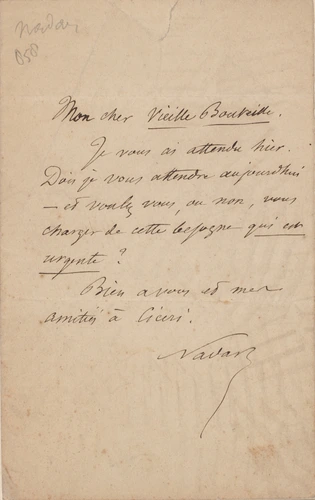 Nadar
058
Mon cher Vieille Bouteille.
Je vous ai attendu hier.
Dois je vous attendre aujourd'hui
– et voulez vous, ou non, vous
charger de cette besogne qui est
urgente ?
Bien a vous et mes
amitiés à Ciceri.
Nadar